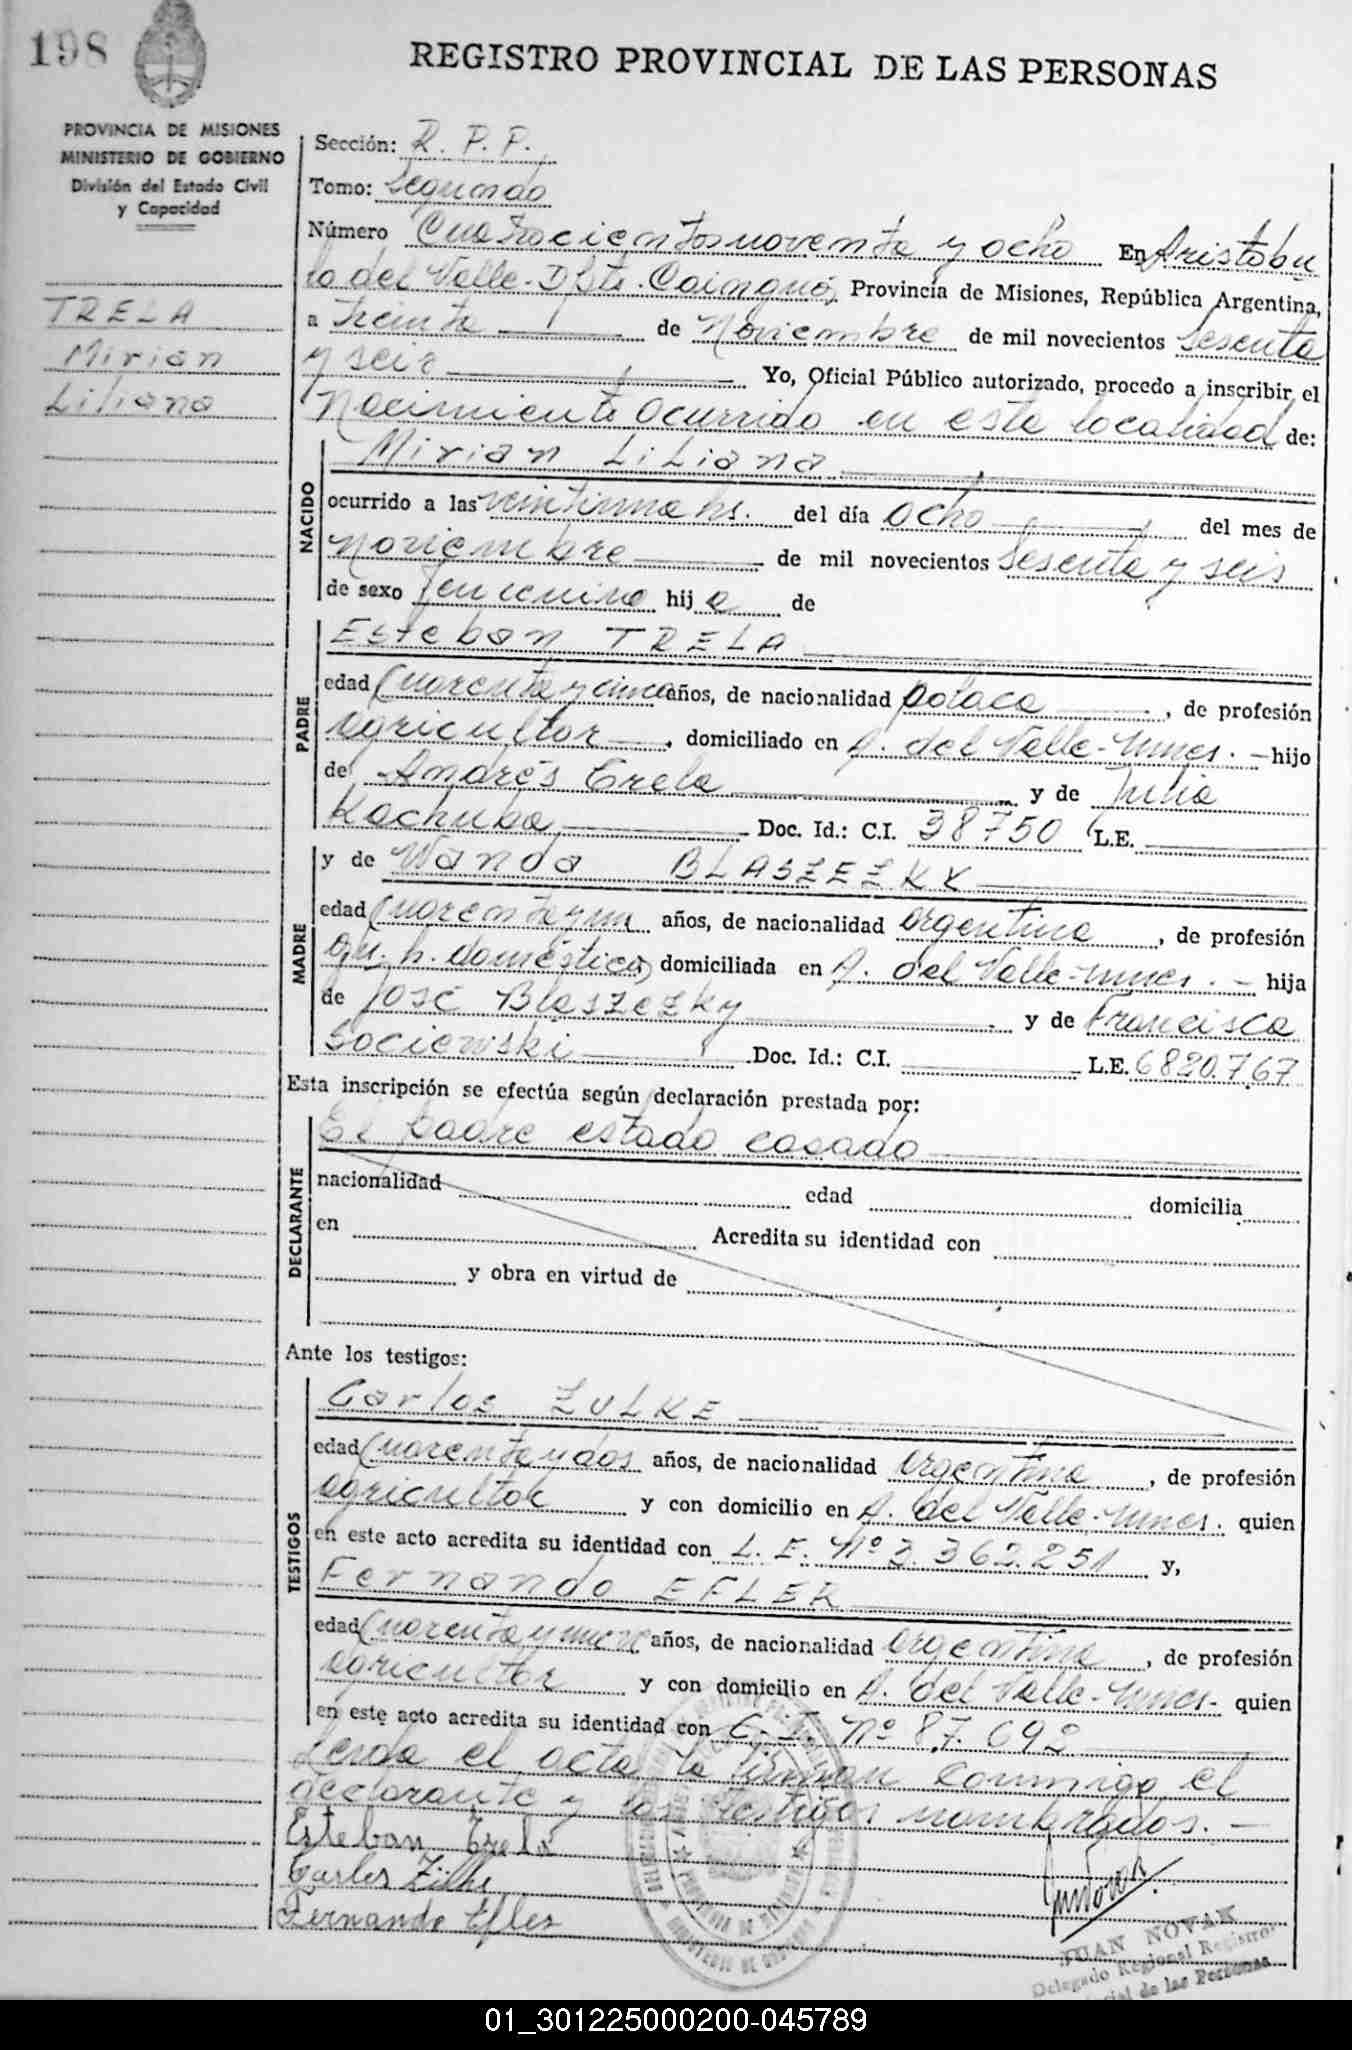 198
REGISTRO PROVINCIAL DE LAS PERSONAS
PROVINCIA DE MISIONES
MINISTERIO DE GOBIERNO
División del Estado Civil
y Capacidad
TRELA
Mirian
Liliana
Sección: R. P. P.
Tomo: Segundo
Número Cuatrocientos noventa y ocho En Aristobu
lo del Valle - Dpto. Cainguás, Provincia de Misiones, República Argentina,
a treinta de Noviembre de mil novecientos sesenta
y seis Yo, Oficial Público autorizado, procedo a inscribir el
Nacimiento Ocurrido en esta localidad de:
NACIDO
Mirian Liliana
ocurrido a las veintiuna hs. del día ocho del mes de
Noviembre de mil novecientos sesenta y seis
de sexo femenino hija de
PADRE
Esteban TRELA
edad Cuarenta y cinco años, de nacionalidad polaca, de profesión
agricultor, domiciliado en A. del Valle - Mnes. - hijo
de Andrés Trela y de Julia
Kachuba Doc. Id.: C.I. 38750 L.E.
MADRE
y de Wanda BLASZEZKY
edad Cuarenta y un años, de nacionalidad argentina, de profesión
qu. h. domésticos, domiciliada en A. del Valle - Mnes. - hija
de José Blaszezky y de Francisca
Sociewski Doc. Id.: C.I. L.E. 6820.767
Esta inscripción se efectúa según declaración prestada por:
DECLARANTE
El padre estado casado
nacionalidad edad domicilia
en Acredita su identidad con
y obra en virtud de
Ante los testigos:
TESTIGOS
Carlos ZULKE
edad Cuarenta y dos años, de nacionalidad argentina, de profesión
agricultor y con domicilio en A. del Valle - Mnes. quien
en este acto acredita su identidad con L. E. Nº 3.362.251 y,
Fernando EFLER
edad Cuarenta y nueve años, de nacionalidad argentina, de profesión
agricultor y con domicilio en A. del Valle - Mnes - quien
en este acto acredita su identidad con C. I. Nº 87.692
Leida el acta la firman conmigo el
declarante y los testigos nombrados. -
Esteban Trela
Carlos Zülke
Fernando Efler
JUAN NOVAK
Delegado Regional Registro
de las Personas
01_301225000200-045789